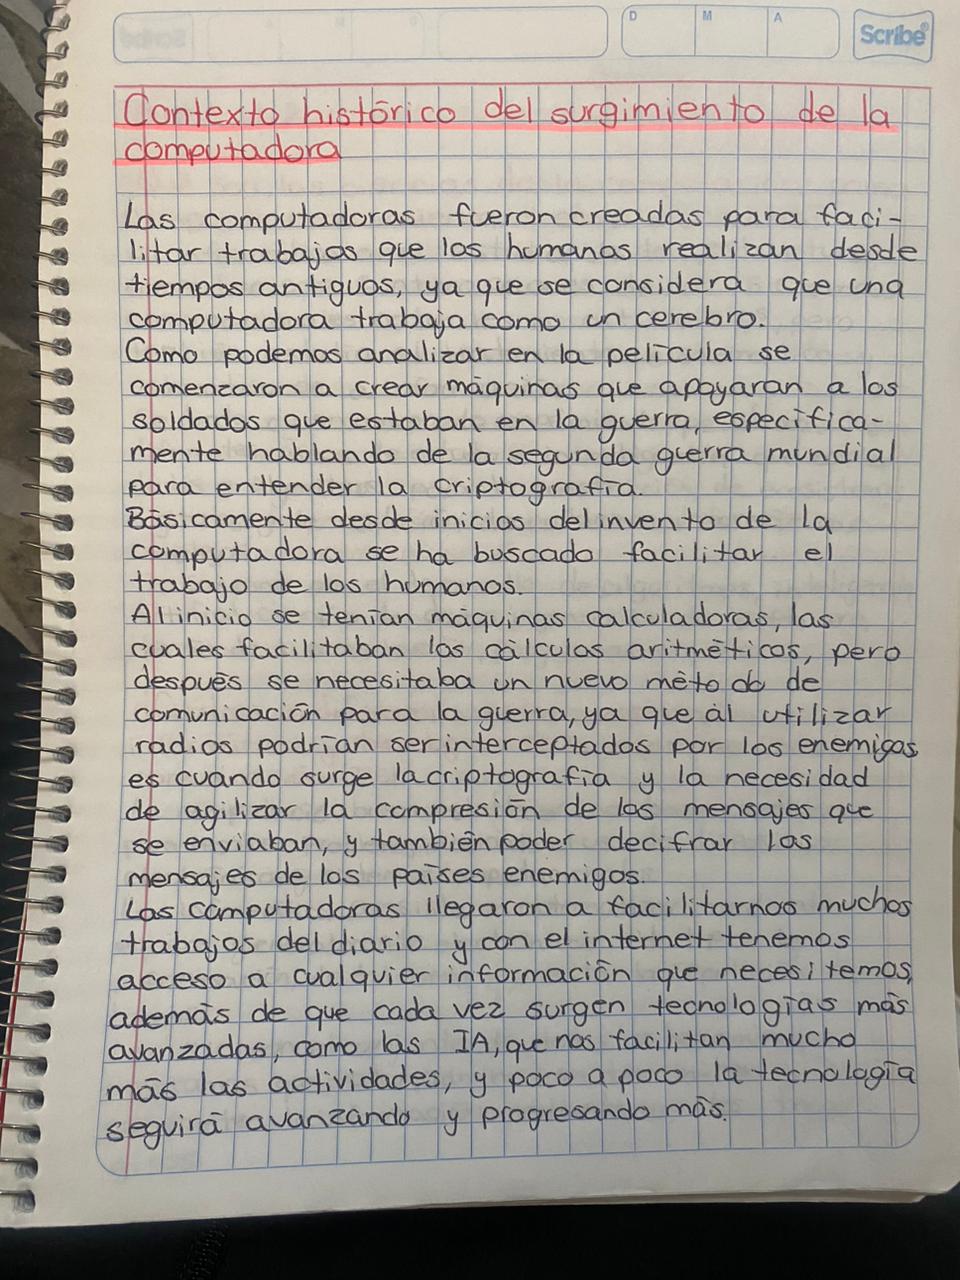 D M A Scribe®
Contexto histórico del surgimiento de la
computadora
Las computadoras fueron creadas para faci-
litar trabajos que los humanos realizan desde
tiempos antiguos, ya que se considera que una
computadora trabaja como un cerebro.
Como podemos analizar en la película se
comenzaron a crear máquinas que apoyaran a los
soldados que estaban en la guerra, específica-
mente hablando de la segunda guerra mundial
para entender la criptografía.
Básicamente desde inicios del invento de la
computadora se ha buscado facilitar el
trabajo de los humanos.
Al inicio se tenían máquinas calculadoras, las
cuales facilitaban los cálculos aritméticos, pero
después se necesitaba un nuevo método de
comunicación para la guerra, ya que ál utilizar
radios podrían ser interceptados por los enemigos
es cuando surge la criptografía y la necesidad
de agilizar la compresión de los mensajes que
se enviaban, y también poder decifrar los
mensajes de los países enemigos.
Las computadoras llegaron a facilitarnos muchos
trabajos del diario y con el internet tenemos
acceso a cualquier información que necesitemos,
además de que cada vez surgen tecnologías más
avanzadas, como las IA, que nos facilitan mucho
más las actividades, y poco a poco la tecnología
seguirá avanzando y progresando más.